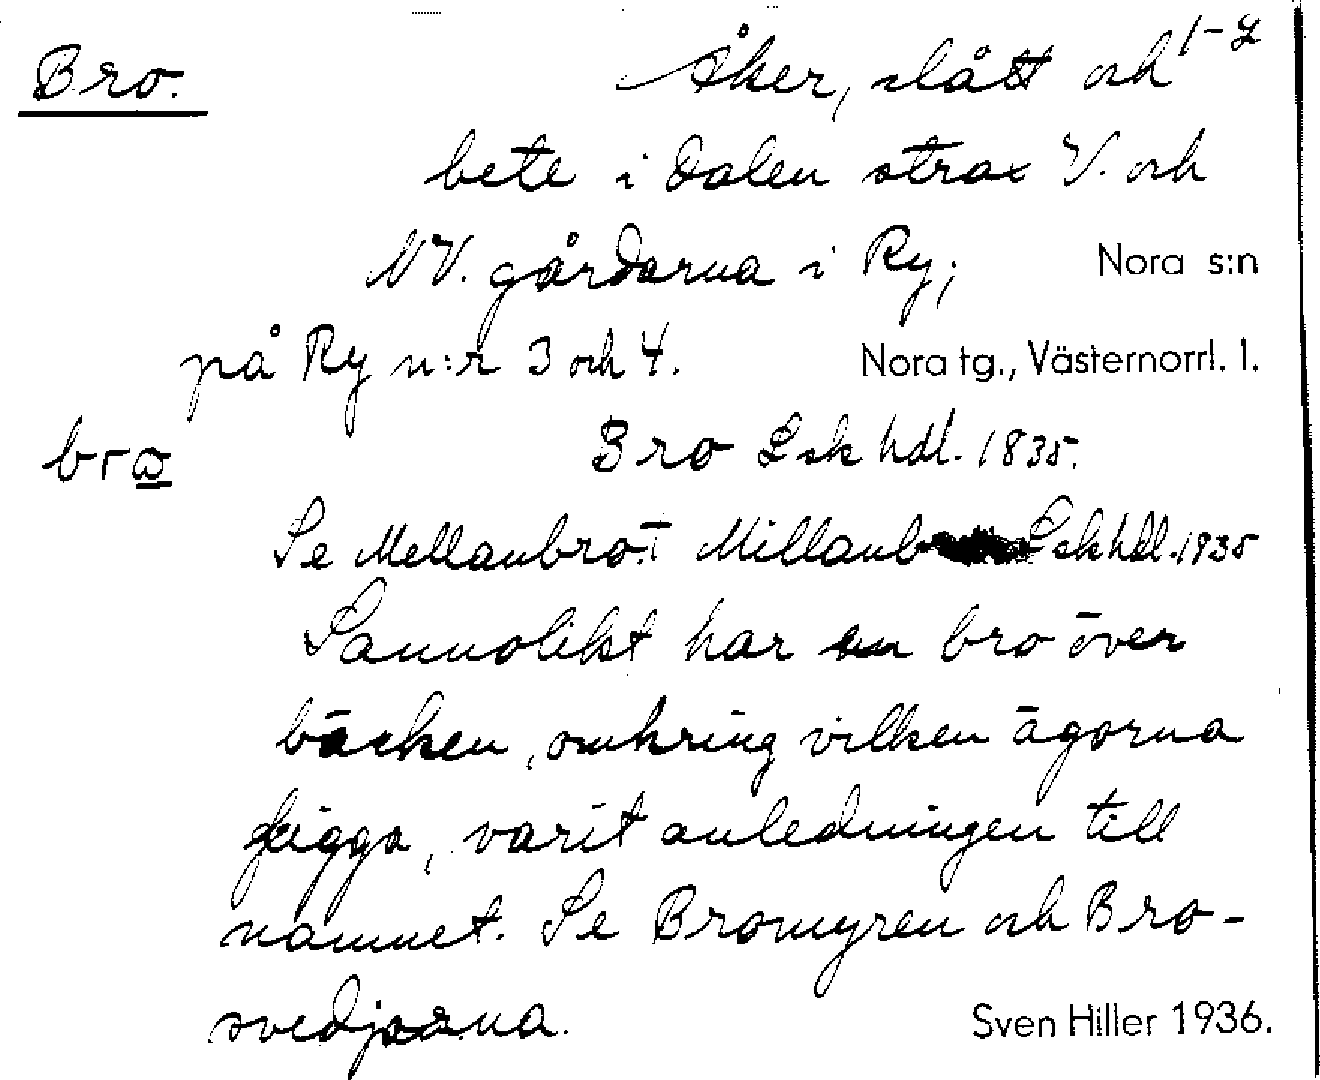 Bro. Åker, slått och 1-2
bete i dalen strax V. och
NV. gårdarna i Ry; Nora s:n
på Ry n:r 3 och 4. Nora tg., Västernorrl. l.
Bro Lsk hdl. 1835.
Se Mellanbrot Lsk hdl. 1935
Sannolikt har en bro över
bäcken, omkring vilken ägorna
ligga, varit anledningen till
namnet. Se Bromyren och Bro-
svedjorna. Sven Hiller 1936.